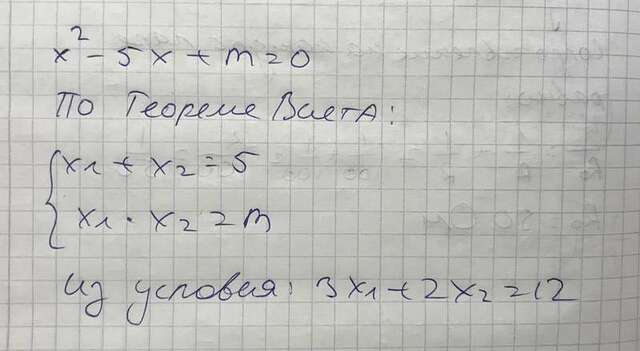 x² - 5x + m = 0
По Теореме Виета:
x1 + x2 = 5
x1 · x2 = m
из условия: 3x1 + 2x2 = 12